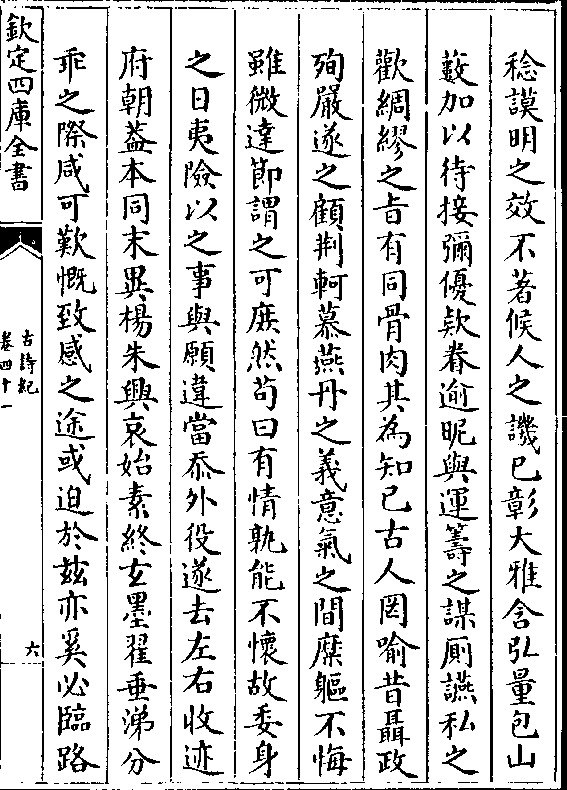 稔謨明之效不著候人之譏已彰大雅含弘量包山
藪加以待接彌優欵眷逾昵與運籌之謀厠讌私之
歡綢繆之㫖有同骨肉其為知已古人罔喻昔聶政
殉嚴遂之顧荆軻慕燕丹之義意氣之間糜軀不悔
雖微達節謂之可庶然苟曰有情孰能不懷故委身
之日夷險以之事與願違當忝外役遂去左右收迹
府朝葢本同末異楊朱興哀始素終𤣥墨翟垂涕分
乖之際咸可歎慨致感之途或迫於兹亦奚必臨路
欽定四庫全書
古詩紀
卷四十一
六